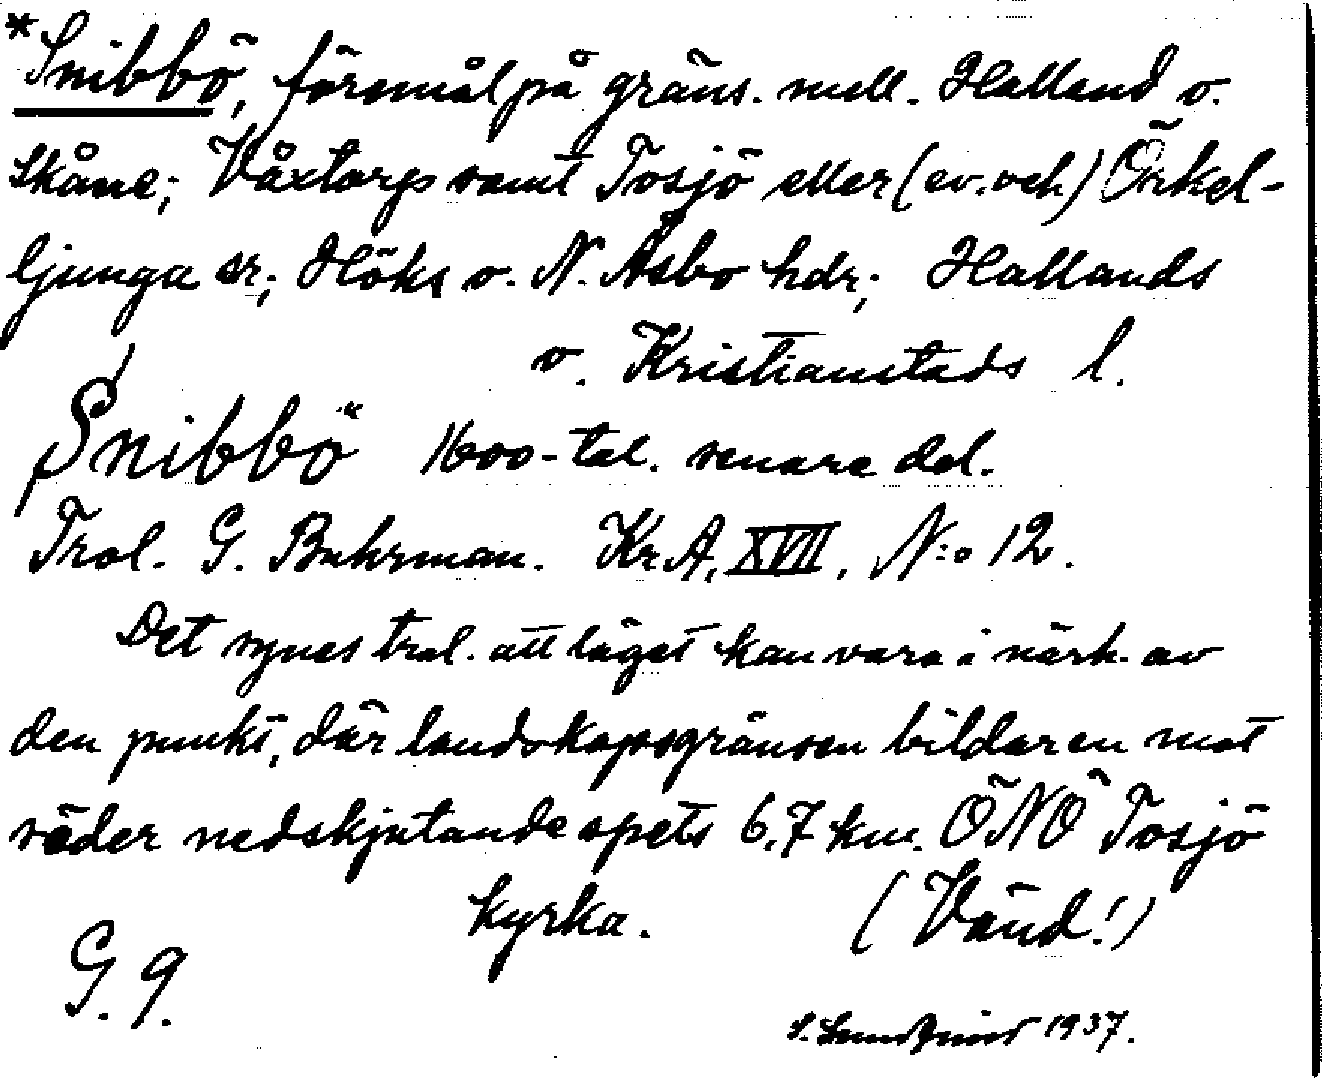 *Snibbö, föremål på gräns. mell. Halland o.
Skåne; Våxtorps samt Tosjö eller (ev. och) Örkel-
ljunga sr; Höks o. N. Åsbo hdr; Hallands
o. Kristianstads l.
Snibbö 1600-tal. senare del.
Trol. G. Buhrman. Kr.A, XVII, N:o 12.
Det synes trol. att läget kan vara i närh. av
den punkt, där landskapsgränsen bildar en mot
söder nedskjutande spets 6.7 km. ÖNÖ Tosjö
kyrka. (Vänd!)
G. 9.
S. Lundquist 1937.